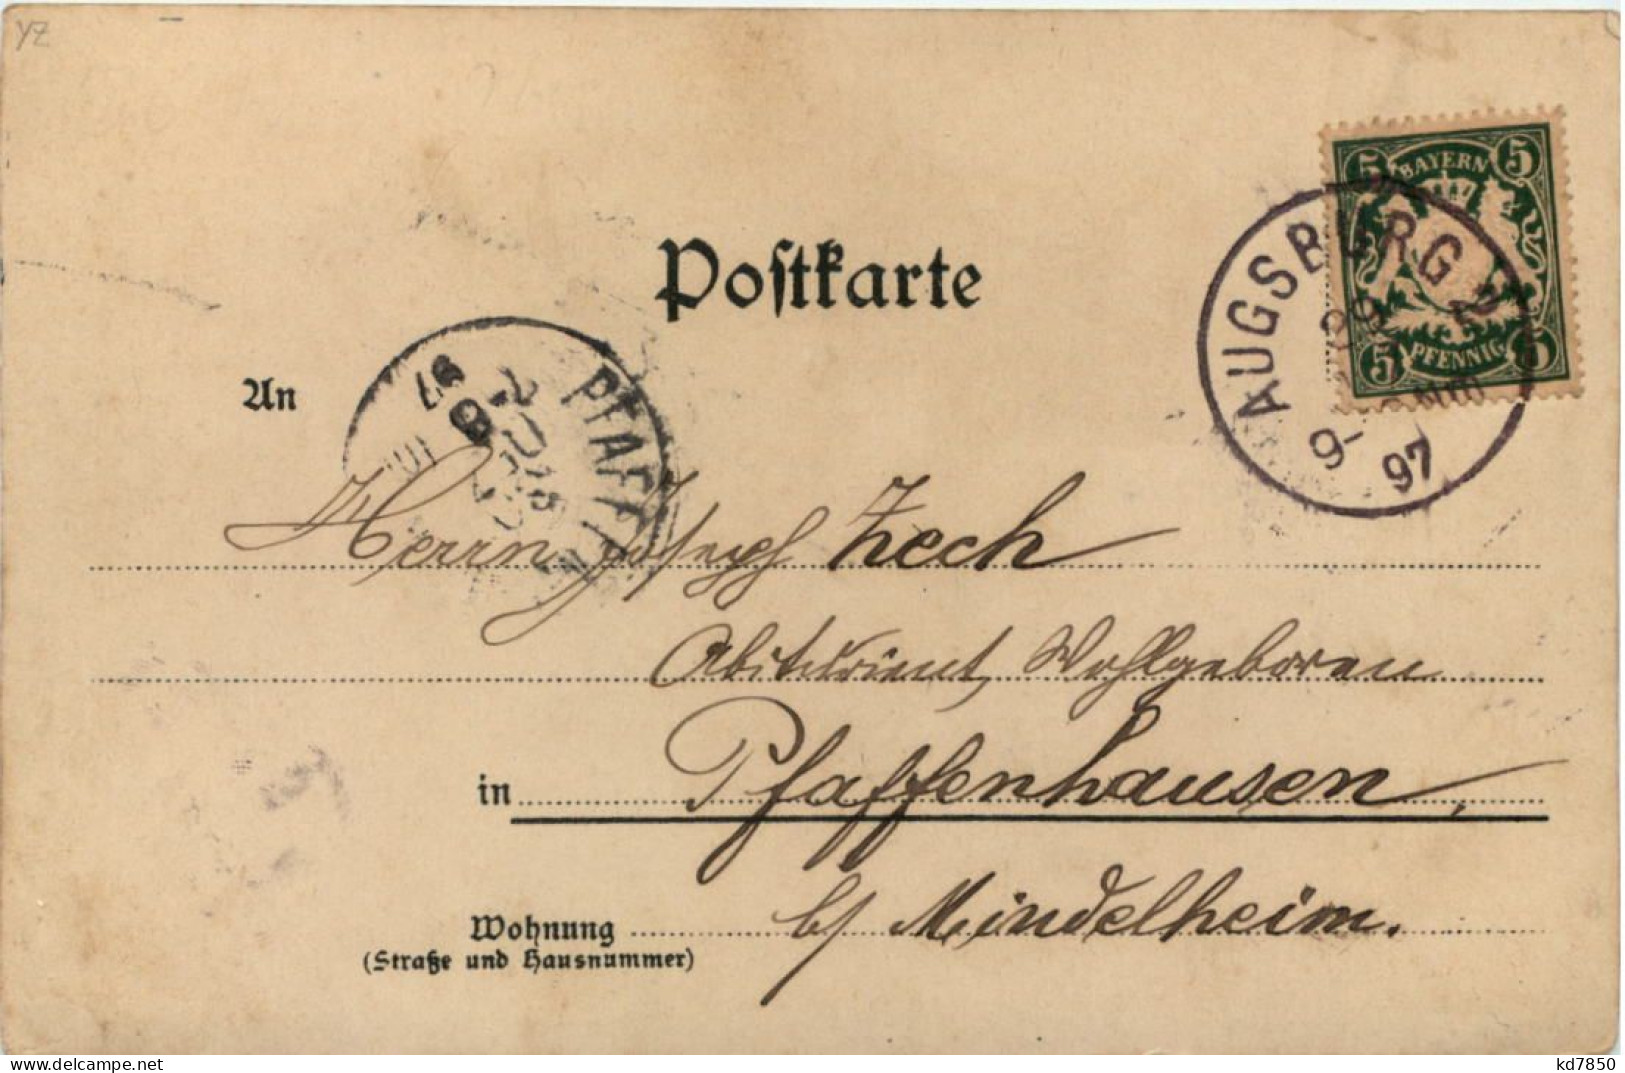 YZ
Postkarte
5 BAYERN 5
5 PFENNIG 5
AUGSBURG 2
97
An
PFAFF
97
Herrn Joseph Zech
Abiturient, Wohlgeboren
in Pfaffenhausen,
b/ Mindelheim.
Wohnung
(Straße und Hausnummer)
www.delcampe.net
kd7850